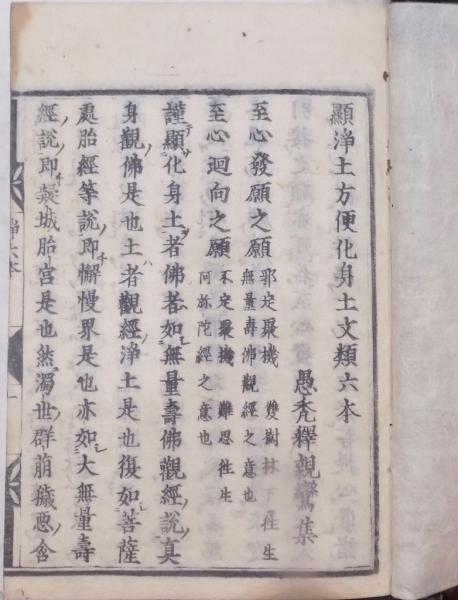 顯淨土方便化身土文類六本
愚禿釋親鸞集
至心發願之願 邪定聚機 雙樹林下往生
無量壽佛觀經之意也
至心迴向之願 不定聚機 難思往生
阿彌陀經之意也
謹顯化身土者佛者如無量壽佛觀經說真
身觀佛是也土者觀經淨土是也復如菩薩
處胎經等說即懈慢界是也亦如大無量壽
經說即疑城胎宮是也然濁世群萠穢惡含